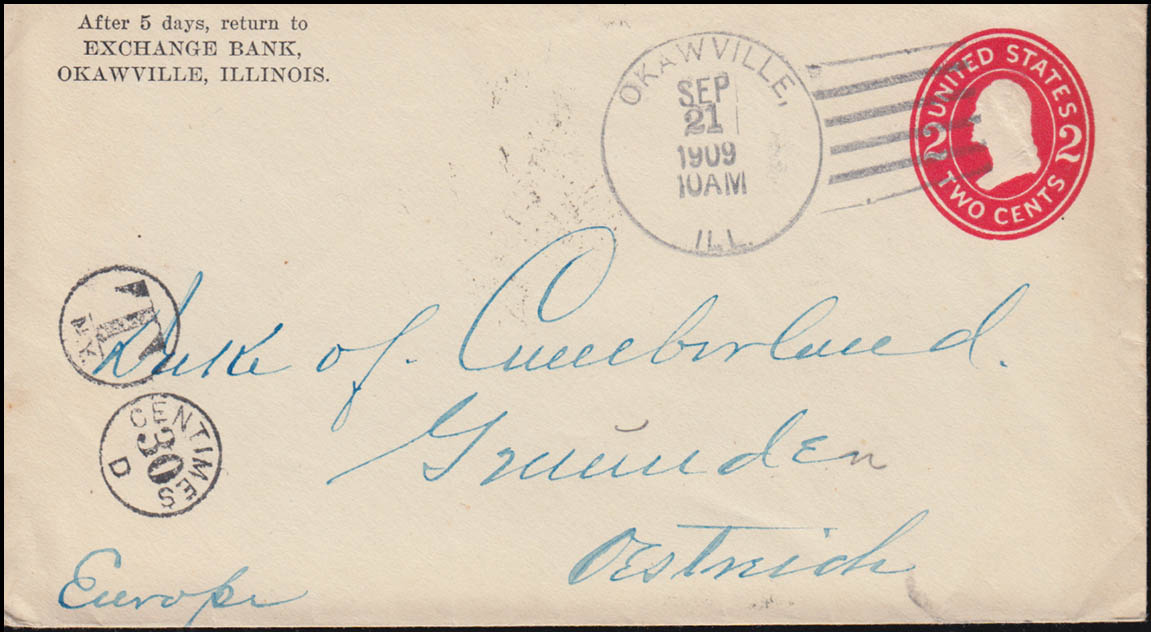 After 5 days, return to
EXCHANGE BANK,
OKAWVILLE, ILLINOIS.
OKAWVILLE,
SEP
21
1909
10AM
ILL.
UNITED STATES
2 2
TWO CENTS
T
Duke of. Cumberland.
CENTIMES
30
D
Gmünden
Oestreich
Europe